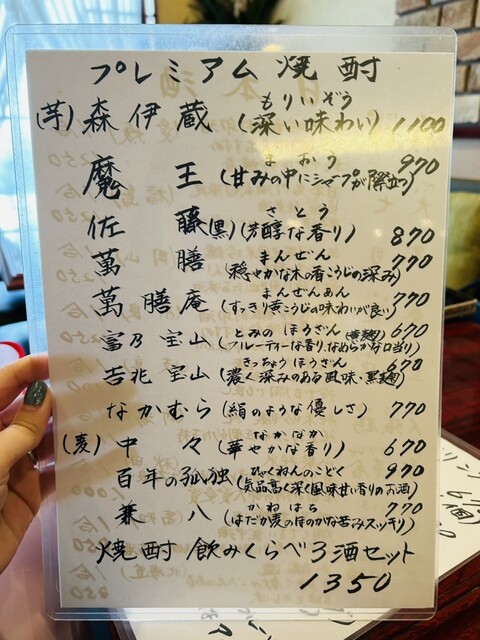 プレミアム焼酎
もりいぞう
(芋)森伊蔵(深い味わい)1100
まおう
魔王(甘みの中にシャープが際立つ)970
さとう
佐藤(黒)(芳醇な香り)870
まんぜん
萬膳(穏やかな木の香こうじの深み)770
まんぜんあん
萬膳庵(すっきり黄こうじの味わいが良い)770
とみのほうざん(黄麹)670
富乃宝山(フルーティーな香り、なめらかな口当り)
きっちょうほうざん670
吉兆宝山(濃く深みのある風味・黒麹)
なかむら(絹のような優しさ)770
なかなか
(麦)中々(華やかな香り)670
ひゃくねんのこどく970
百年の孤独(気品高く深く風味甘い香りのお酒)
かねはち770
兼八(はだか麦のほのかな苦みスッキリ)
焼酎飲みくらべ3酒セット
1350